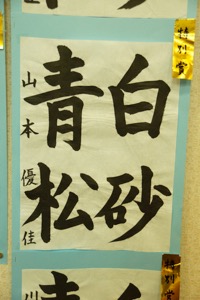 白砂
青松
山本優佳
特別賞
特別賞